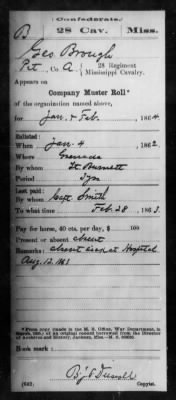 Confederate.
B 28 Cav. Miss.
Geo Brough
Pvt, Co. A, 28 Regiment
Mississippi Cavalry.
Appears on
Company Muster Roll*
of the organization named above,
for Jan & Feb, 1864
Enlisted:
When Jan 4, 1862
Where Grenada
By whom Lt. Burnett
Period 3 yrs
Last paid:
By whom Capt Smith
To what time Feb. 28, 1863.
Pay for horse, 40 cts. per day, $ 100
Present or absent absent
Remarks: absent died at Hospital
Aug. 12. 1863
*From copy made in the M. S. Office, War Department, in
Book mark:
(642) Copyist.